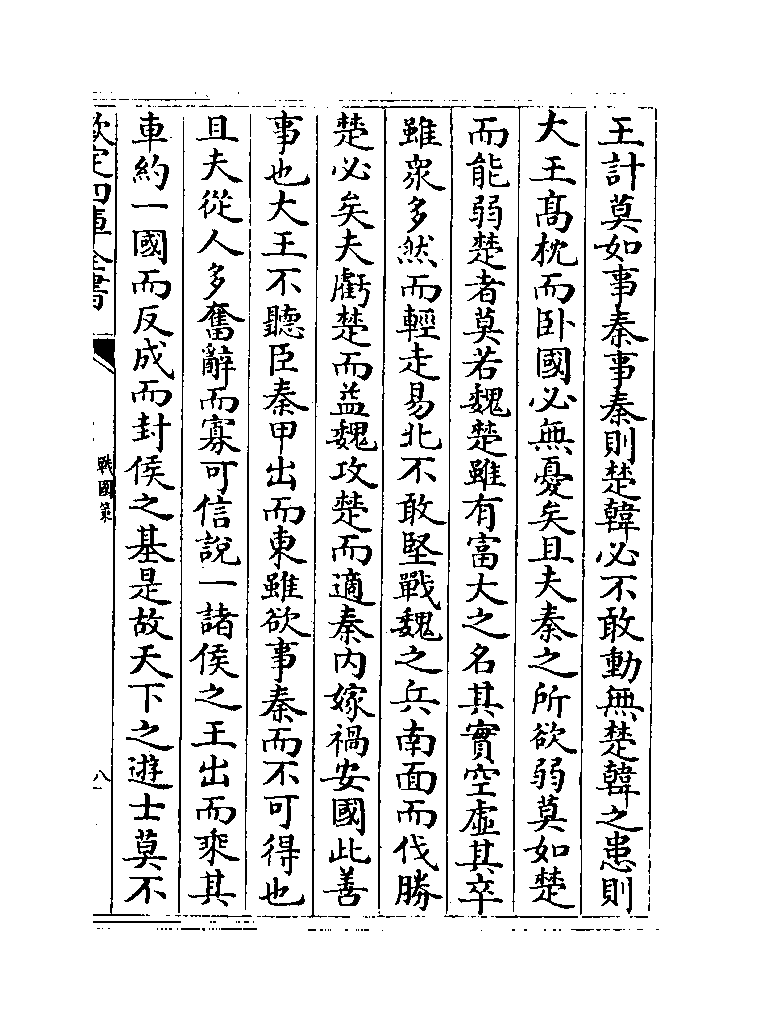 王計莫如事秦事秦則楚韓必不敢動無楚韓之患則
大王髙枕而卧國必無憂矣且夫秦之所欲弱莫如楚
而能弱楚者莫若魏楚雖有富大之名其實空虛其卒
雖衆多然而輕走易北不敢堅戰魏之兵南面而伐勝
楚必矣夫虧楚而益魏攻楚而適秦内嫁禍安國此善
事也大王不聽臣秦甲出而東雖欲事秦而不可得也
且夫從人多奮辭而寡可信說一諸侯之王出而乘其
車約一國而反成而封侯之基是故天下之遊士莫不
欽定四庫全書
戰國策
八